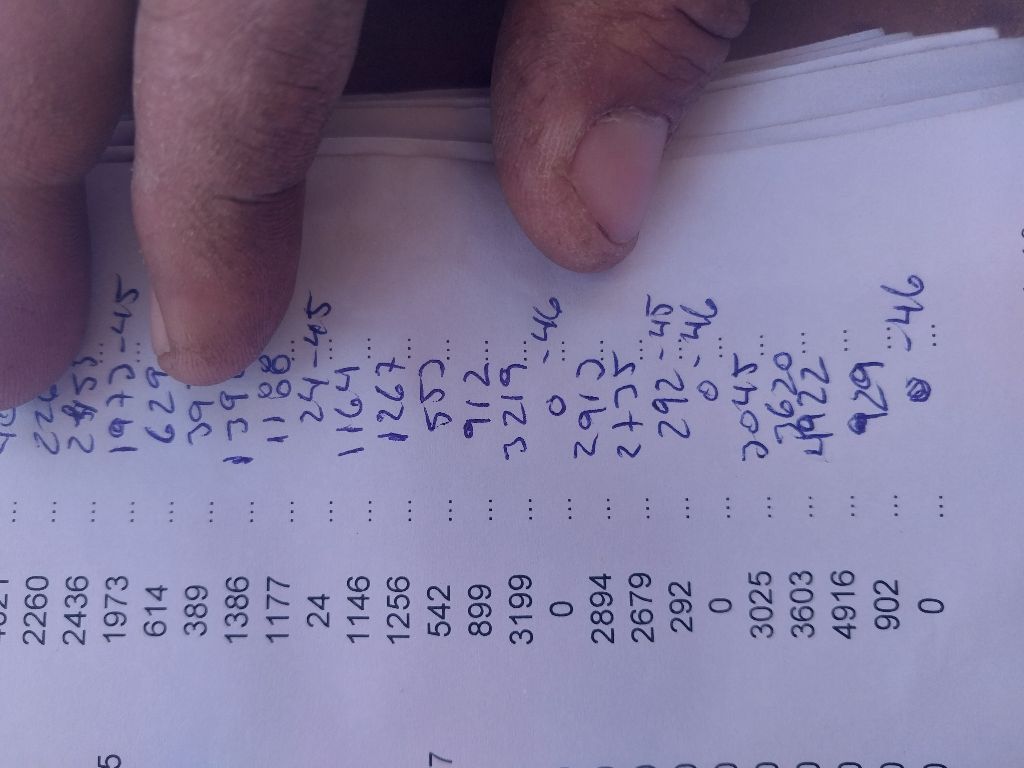 2260 ... 226
2436 ... 2453 ...
1973 ... 1973 ... -45
614 ... 629
389 ... 39
1386 ... 139
1177 ... 1188 ...
24 ... 24 -405
1146 ... 1164 ...
1256 ... 1267 ...
542 ... 553 ...
899 ... 912 ...
3199 ... 3219 ...
0 ... 0 ... -46
2894 ... 2913 ...
2679 ... 2735 ...
292 ... 292 ... -45
0 ... 0 ... -46
3025 ... 3045 ...
3603 ... 3620 ...
4916 ... 4922 ...
902 ... 929 ...
0 ... 0 ... -46